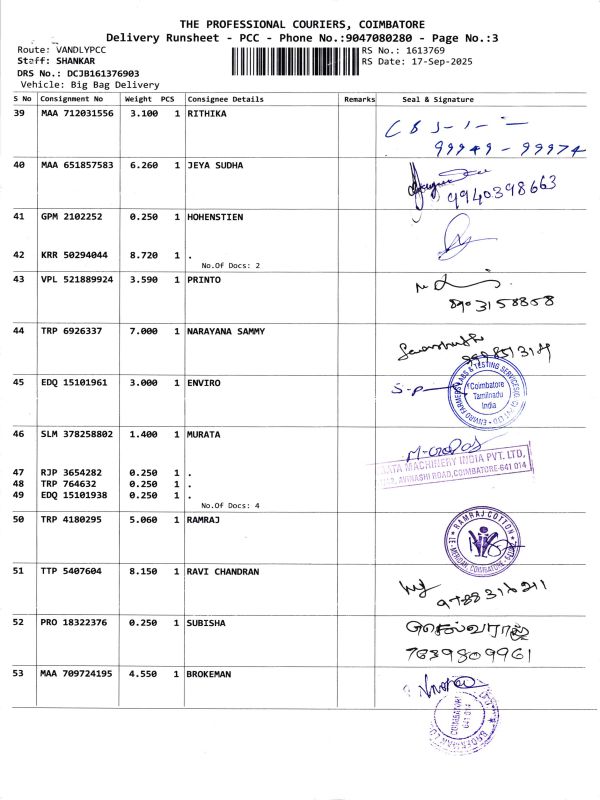 THE PROFESSIONAL COURIERS, COIMBATORE
Delivery Runsheet - PCC - Phone No.:9047080280 - Page No.:3
Route: VANDLYPCC
RS No.: 1613769
Staff: SHANKAR
RS Date: 17-Sep-2025
DRS No.: DCJB161376903
Vehicle: Big Bag Delivery
S No Consignment No Weight PCS Consignee Details Remarks Seal & Signature
39 MAA 712031556 3.100 1 RITHIKA
99949 - 99974
40 MAA 651857583 6.260 1 JEYA SUDHA
9940398663
41 GPM 2102252 0.250 1 HOHENSTIEN
42 KRR 50294044 8.720 1 .
No.Of Docs: 2
43 VPL 521889924 3.590 1 PRINTO
8903158858
44 TRP 6926337 7.000 1 NARAYANA SAMMY
45 EDQ 15101961 3.000 1 ENVIRO
S-P
ENVIRO FARMERS LABS & TESTING SERVICES(I) PVT LTD
Coimbatore
Tamilnadu
India
46 SLM 378258802 1.400 1 MURATA
MACHINERY INDIA PVT. LTD.
AVINASHI ROAD, COIMBATORE-641 014
47 RJP 3654282 0.250 1 .
48 TRP 764632 0.250 1 .
49 EDQ 15101938 0.250 1 .
No.Of Docs: 4
50 TRP 4180295 5.060 1 RAMRAJ
RAMRAJ COTTON
COIMBATORE
51 TTP 5407604 8.150 1 RAVI CHANDRAN
52 PRO 18322376 0.250 1 SUBISHA
செல்வராஜ்
7639809961
53 MAA 709724195 4.550 1 BROKEMAN
COIMBATORE
641 014